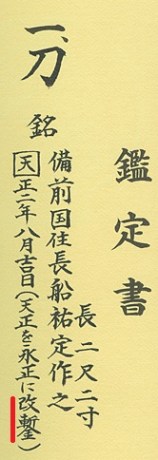 鑑定書
長 二尺二寸
一、刀 銘
備前国住長船祐定作之
天正二年八月吉日(天正を永正に改鏨)